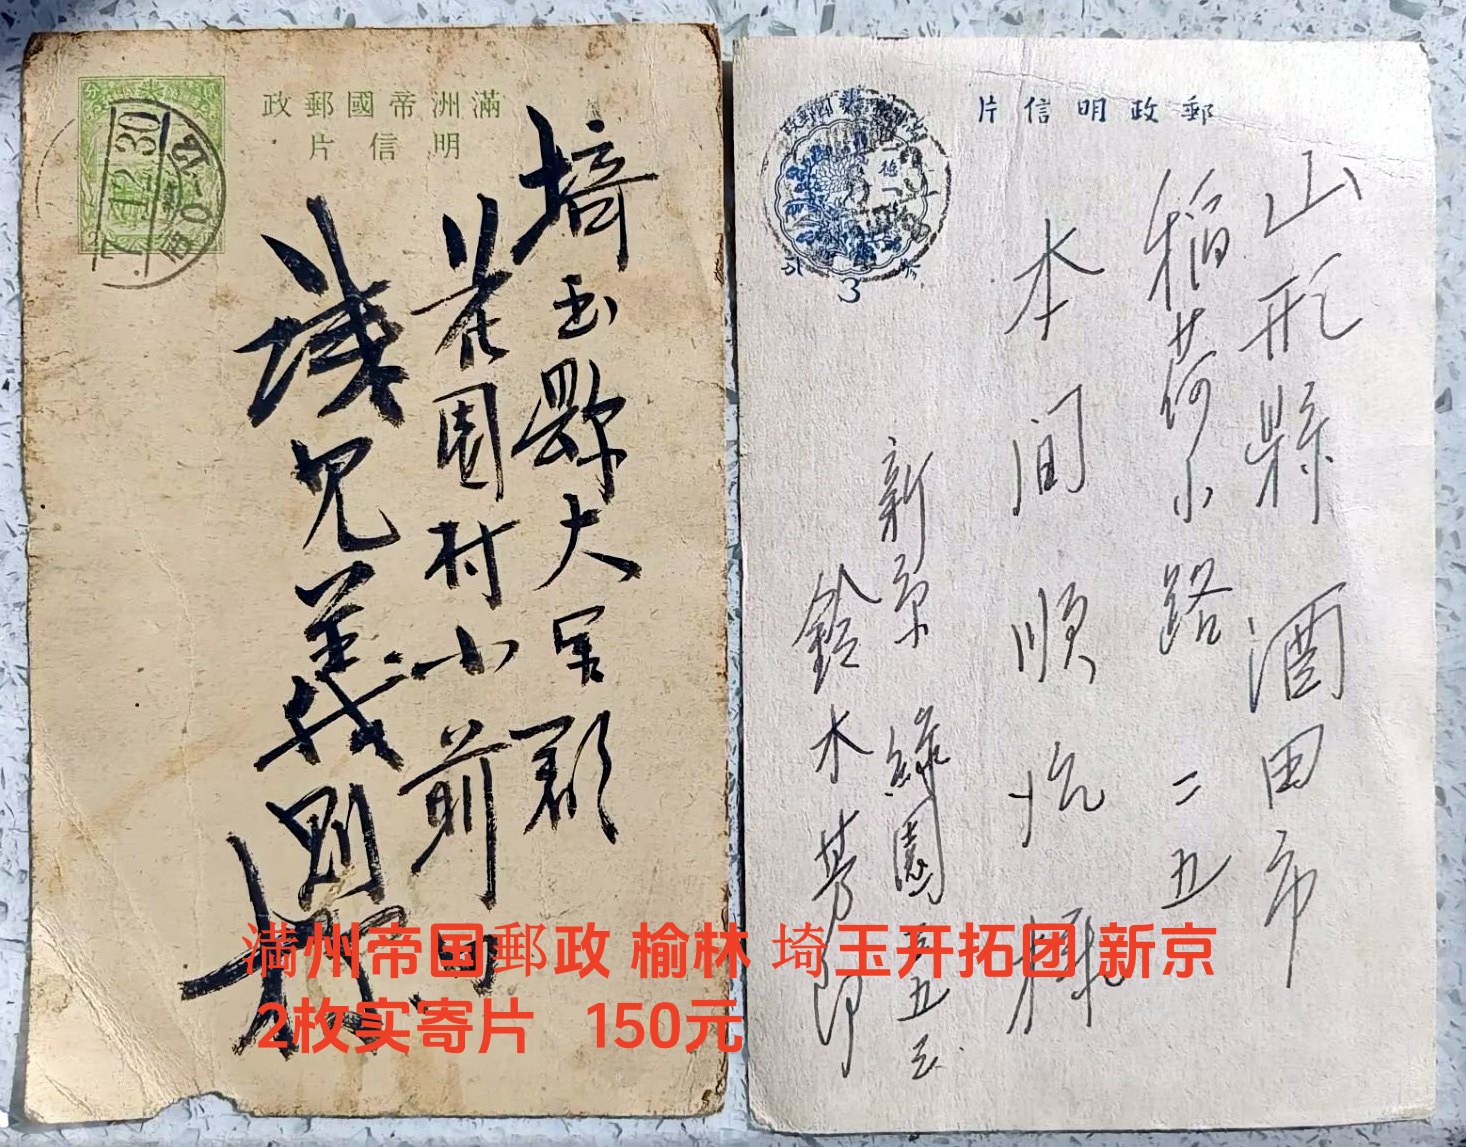 政郵國帝洲滿
片信明
12.30
埼玉縣大里郡
花園村小前田
浅見義戔則様
片信明政郵
3
山形縣酒田市
稲荷小路二五
本間順治様
新京緑園五五五
鈴木芳郎
満州帝国郵政 榆林 埼玉开拓团 新京
2枚实寄片 150元